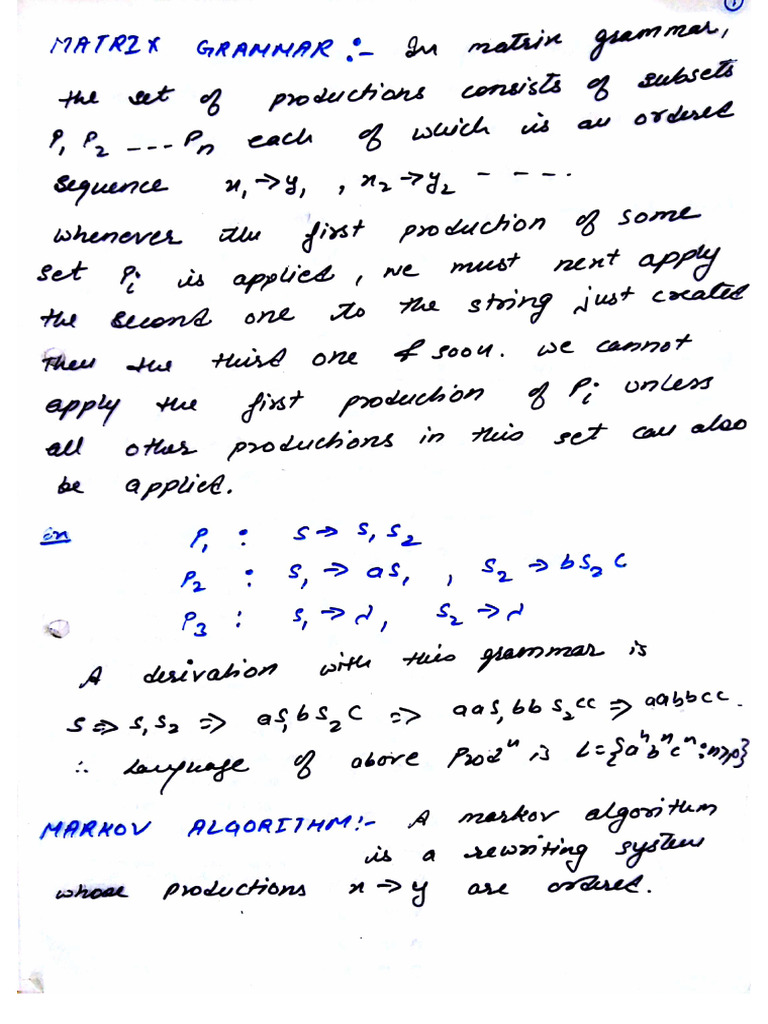 1
MATRIX GRAMMAR :- In matrix grammar,
the set of productions consists of subsets
P₁ P₂ --- Pₙ each of which is an ordered
sequence x₁→y₁, x₂→y₂ - - - -.
whenever the first production of some
set Pᵢ is applied, we must next apply
the second one to the string just created
Then the third one & soon. we cannot
apply the first production of Pᵢ unless
all other productions in this set can also
be applied.
ex P₁ : S→ S₁ S₂
P₂ : S₁ → aS₁, S₂ → bS₂ C
P₃ : S₁ → λ, S₂ → λ
A derivation with this grammar is
S ⇒ S₁S₂ ⇒ aS₁bS₂C ⇒ aaS₁bbS₂cc ⇒ aabbcc.
∴ Language of above Prodⁿ is L={aⁿbⁿcⁿ:n≥0}
MARKOV ALGORITHM:- A markov algorithm
is a rewriting system
whose productions x → y are ordered.